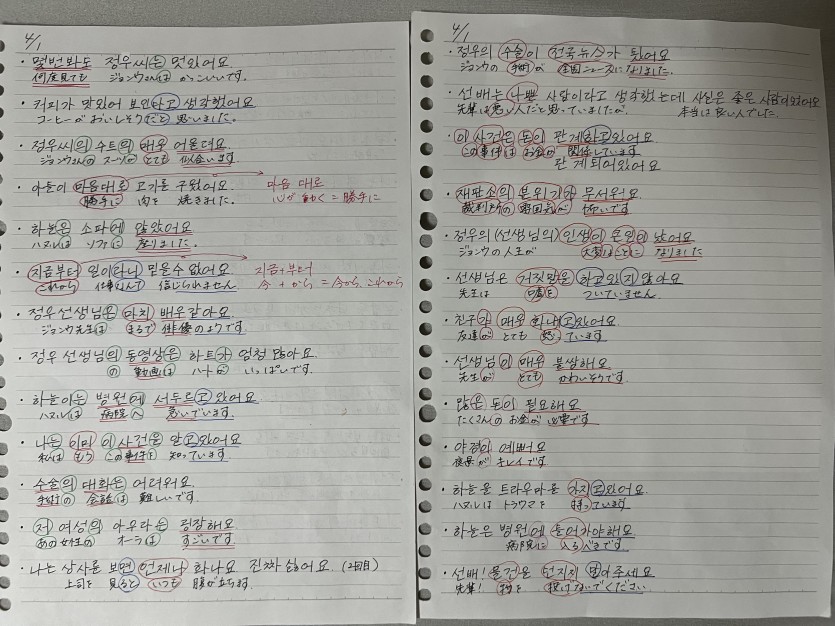 4/1
・몇번봐도 정우씨는 멋있어요
何度見ても ジョンウさんは かっこいいです。
・커피가 맛있어 보인다고 생각했어요
コーヒーが おいしそうだと 思いました。
・정우씨의 수트의 매우 어울려요
ジョンウさんの スーツの とても 似合います
・아들이 마음대로 고기를 구웠어요. 마음 대로
勝手に 肉を 焼きました。 心が動く=勝手に
・하늘은 소파에 앉았어요
ハヌルは ソファに 座りました。
・지금부터 일이라니 믿을수 없어요 지금+부터
これから 仕事なんて 信じられません 今+から=今から、これから
・정우 선생님은 마치 배우같아요
ジョンウ先生は まるで 俳優のようです。
・정우 선생님의 동영상은 하트가 엄청 많아요
の 動画は ハートが いっぱいです。
・하늘이는 병원에 서두르고 있어요
ハヌルは 病院へ 急いでいます
・나는 이미 이 사건을 알고있어요
私は もう この事件を 知っています
・수술의 대화는 어려워요.
手術の 会話は 難しいです。
・저 여성의 아우라는 굉장해요
あの女性の オーラは すごいです
・나는 상사를 보면 언제나 화나요 진짜 싫어요 (2回目)
上司を 見ると いつも 腹が立ちます
4/1
・정우의 수술이 전국뉴스가 됐어요
ジョンウの 手術が 全国ニュースになりました。
・선배는 나쁜 사람이라고 생각했는데 사실은 좋은 사람이었어요
先輩は悪い人だと思っていましたが、 本当は良い人でした。
・이 사건은 돈이 관계하고있어요
この事件は お金が 関係しています
관계되어있어요
・재판소의 분위기가 무서워요.
裁判所の 雰囲気が 怖いです
・정우의(선생님의) 인생이 큰일이 났어요
ジョンウの人生が 大変なことに なりました
・선생님은 거짓말을 하고있지 않아요
先生は 嘘を ついていません
・친구가 매우 화내고있어요
友達が とても 怒っています
・선생님이 매우 불쌍해요
先生が とても かわいそうです。
・많은 돈이 필요해요
たくさんの お金が 必要です
・야경이 예뻐요
夜景が キレイです
・하늘은 트라우마를 가지고있어요.
ハヌルは トラウマを 持っています
・하늘은 병원에 들어가야해요
病院に 入るべきです
・선배! 물건은 던지지 말아주세요
先輩! 物を 投げないでください